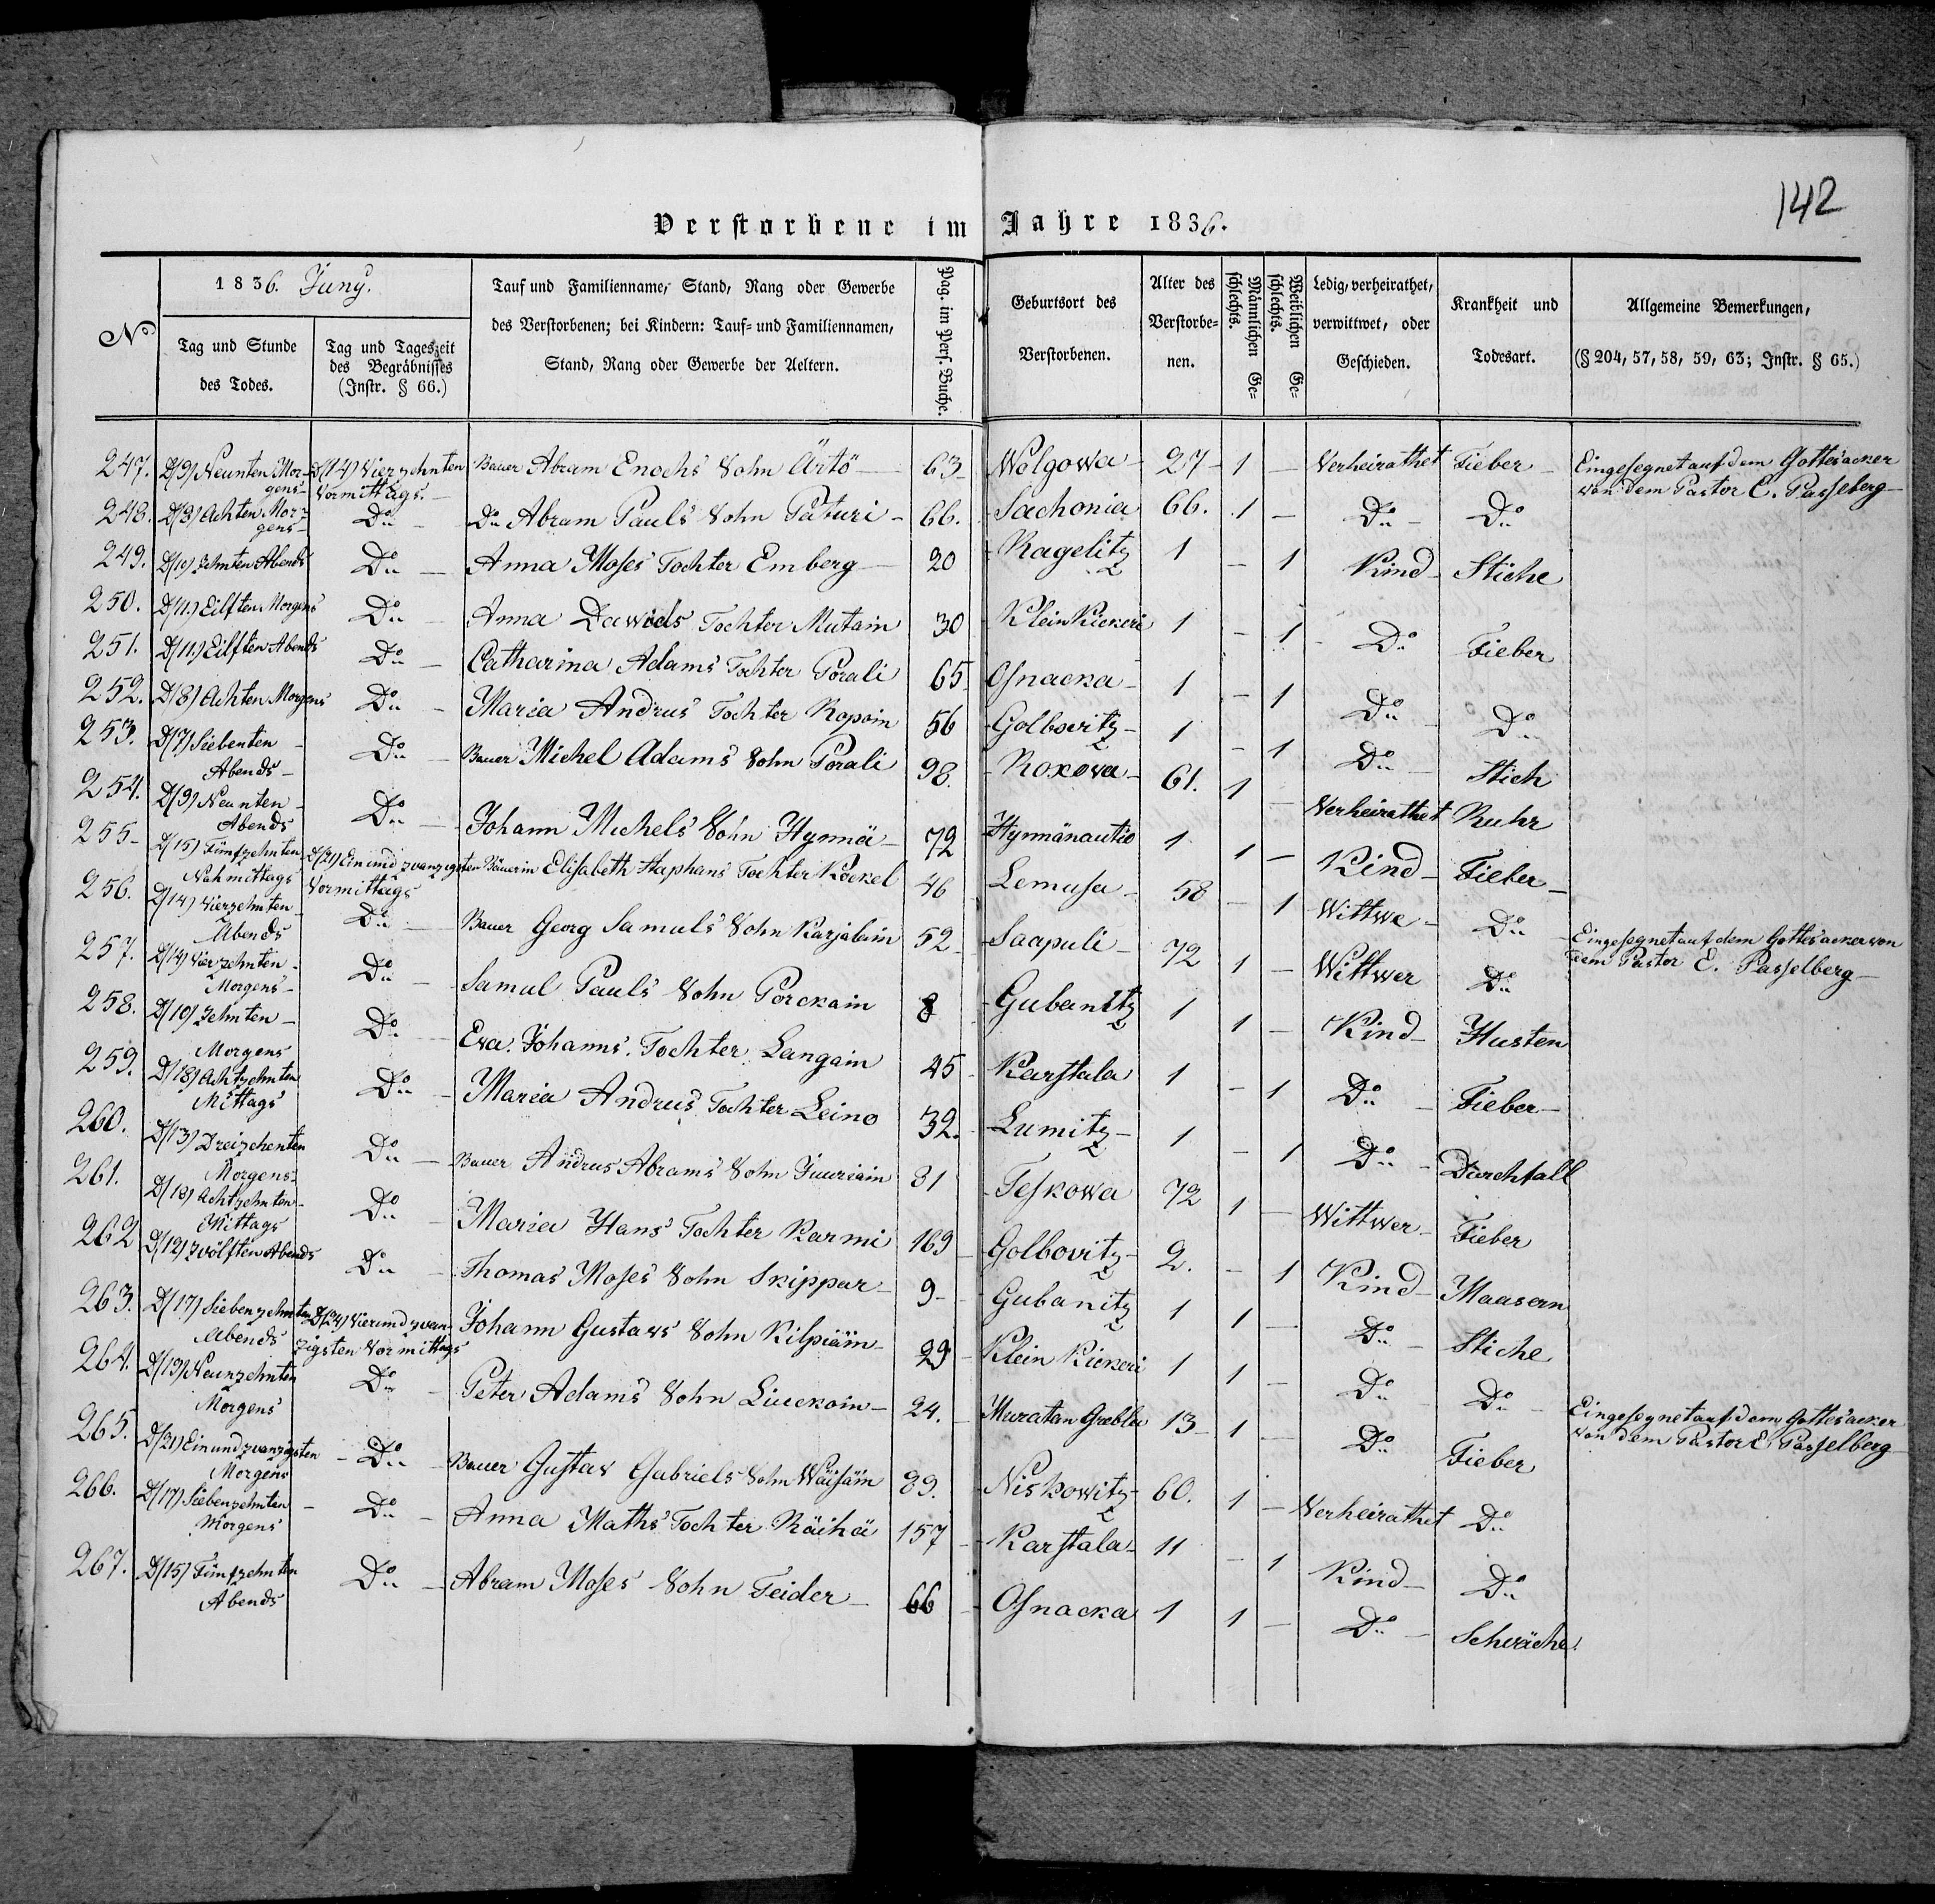 142
Verstorbene im Jahre 1836.
No
1836. Juny.
Tag und Stunde des Todes.
Tag und Tageszeit des Begräbnisses (Instr. § 66.)
Tauf und Familienname, Stand, Rang oder Gewerbe des Verstorbenen; bei Kindern: Tauf- und Familiennamen, Stand, Rang oder Gewerbe der Aeltern.
Pag. im Pers. Buche.
Geburtsort des Verstorbenen.
Alter des Verstorbe-nen.
Männlichen Ge-schlechts.
Weiblichen Ge-schlechts.
Ledig, verheirathet, verwittwet, oder Geschieden.
Krankheit und Todesart.
Allgemeine Bemerkungen, (§ 204, 57, 58, 59, 63; Instr. § 65.)
247. D(9) Neunten Mor-gens D(14) Vierzehnten Vormittags. Bauer Abram Enochs Sohn Ärtö 63 Wolgowa 27 1 – Verheirathet Fieber Eingesegnet auf dem Gottesacker von dem Pastor E. Passelberg
248. D(8) Achten Mor-gens Do Do Abram Pauls Sohn Paturi 66. Sachonia 66. 1 – Do Do
249. D(10) Zehnten Abends Do Anna Moses Tochter Emberg 20 Ragelitz 1 – 1 Kind Stiche
250. D(11) Eilften Morgens Do Anna Dawids Tochter Mutain 30 Klein Kickeri 1 – 1 Do Fieber
251. D(11) Eilften Abends Do Catharina Adams Tochter Porali 65 Osnacka 1 – 1 Do Do
252. D(8) Achten Morgens Do Maria Andrus Tochter Ropoin 56 Golbovitz 1 – 1 Do Stich
253. D(7) Siebenten Abends Do Bauer Michel Adams Sohn Porali 98. Roxova 61. 1 – Verheirathet Ruhr
254. D(9) Neunten Abends Do Johann Michels Sohn Hynnä 72 Hynnänautio 1 1 – Kind Fieber
255 D(15) Fünfzehnten Nahmittags D(21) Einundzwanzigsten Vormittags Bäuerin Elisabeth Staphans Tochter Köckel 46 Lemusa 58 – 1 Wittwe Do
256. D(14) Vierzehnten Abends Do Bauer Georg Samuls Sohn Karjalain 52 Saapuli 72 1 – Wittwer Do Eingesegnet auf dem Gottesacker von dem Pastor E. Passelberg
257. D(14) Vierzehnten Morgens Do Samul Pauls Sohn Porckain 8 Gubanitz 1 1 – Kind Husten
258. D(10) Zehnten Morgens Do Eva Johanns Tochter Langain 45 Karstala 1 – 1 Do Fieber
259. D(18) Achtzehnten Mittags Do Maria Andrus Tochter Leino 32. Lumitz 1 – 1 Do Durchfall
260. D(13) Dreizehenten Morgens Do Bauer Andrus Abrams Sohn Juuriain 31 Teskowa 72 1 – Wittwer Fieber
261. D(18) Achtzehnten Mittags Do Maria Hans Tochter Karmi 169 Golbovitz 2. – 1 Kind Maasern
262 D(12) Zwölften Abends Do Thomas Moses Sohn Skippar 9 Gubanitz 1 1 – Do Stiche
263. D(17) Siebenzehnten Abends D(24) Vierundzwan-zigsten Vormittags Johann Gustavs Sohn Kilpiäin 29 Klein Kickeri 1 1 – Do Do
264. D(19) Neunzehnten Morgens Do Peter Adams Sohn Liuckoin 24. Muratan Grebla 13 1 – Do Fieber Eingesegnet auf dem Gottesacker von dem Pastor E. Passelberg
265. D(21) Einundzwanzigsten Morgens Do Bauer Gustav Gabriels Sohn Wäisäin 89. Niskowitz 60. 1 – Verheirathet Do
266. D(17) Siebenzehnten Morgens Do Anna Maths Tochter Räihä 157 Karstala 11 – 1 Kind Do
267. D(15) Fünfzehnten Abends Do Abram Moses Sohn Teider 66 Osnacka 1 1 – Do Schwäche